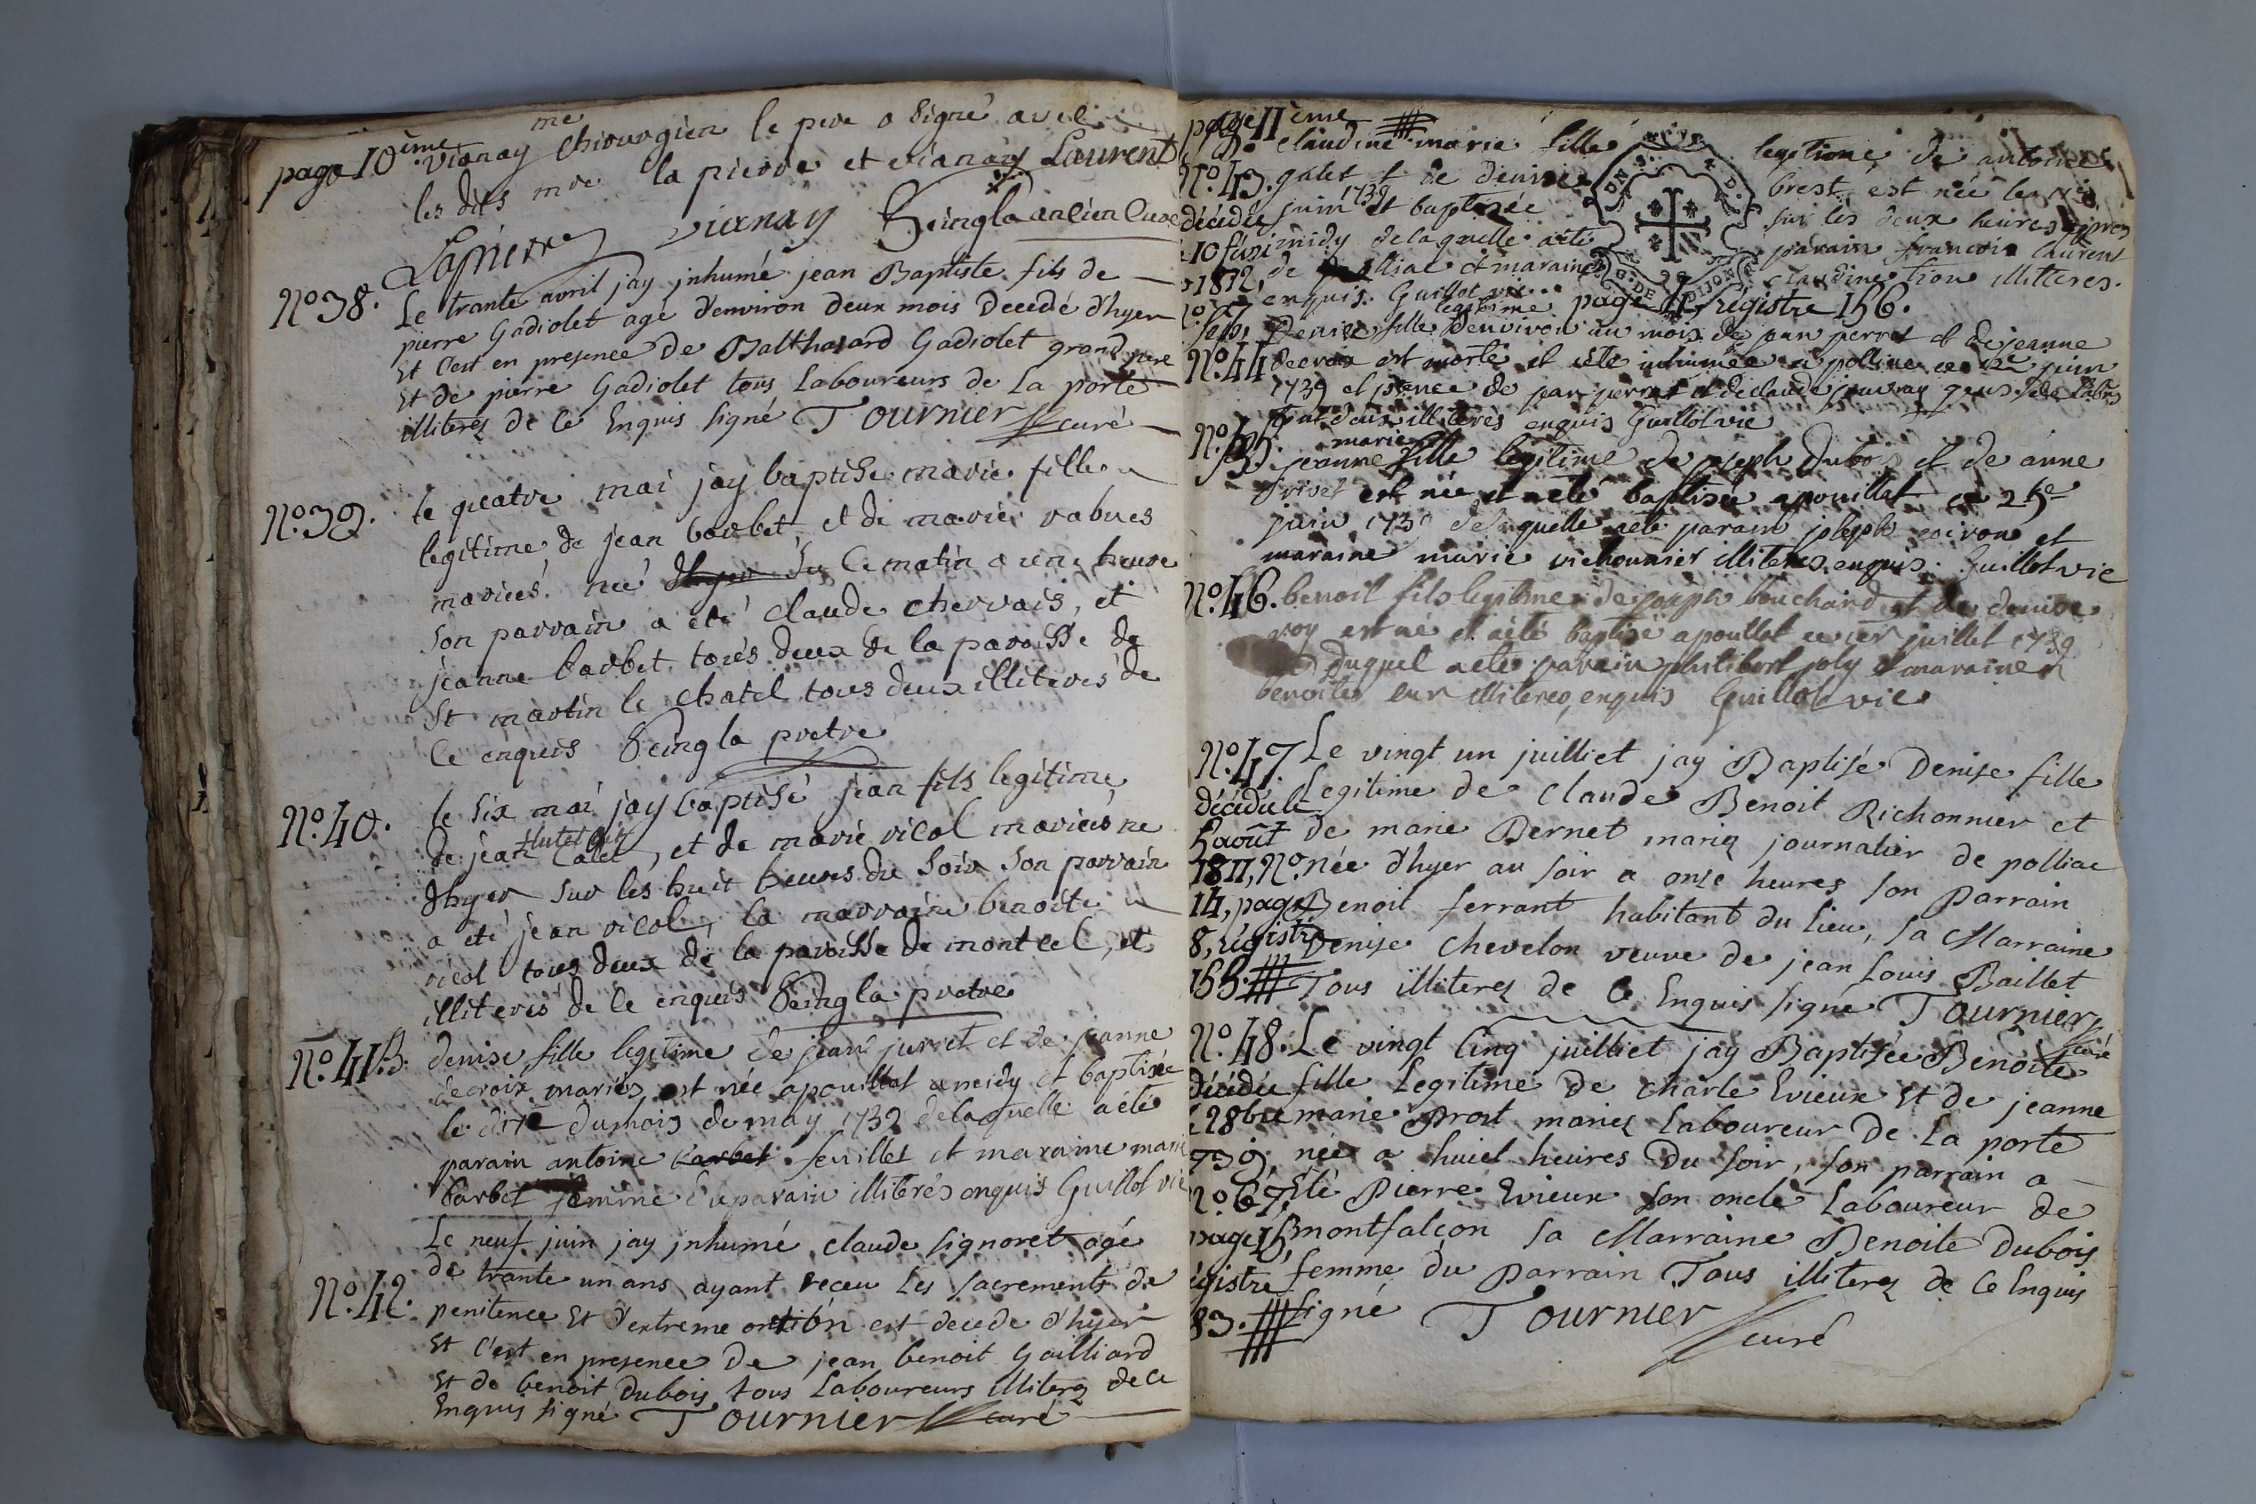 page 10ème vianay me chirurgien le pere a signé avec
les dits mre la pierre et vianay Laurent
Lapierre vianay Seingla ancien curé
No. 38. Le trante avril jay jnhumé jean Baptiste fils de
pierre Gadiolet age denviron deux mois decedé d'hyer
Et C'est en presence de Balthasard Gadiolet grand pere
Et de pierre Gadiolet tous Laboureurs de La porte
illiterez de Ce Enquis signé Tournier curé
No. 39. le quatre mai jay baptisé marie fille
legitime de jean barbet, et de marie rabues
mariés. née du Ce matin a une heure
son parrain a eté claude chervais, et
jeanne barbet tous deux de la paroisse de
St martin le chatel tous deux illiterés de
Ce enquis Seingla pretre
No. 40. le six mai jay baptisé jean fils legitime
de jean Calet, et de marie vicol mariés né
dhyer sur les huit heures du soir son parrain
a eté jean vicol, la marraine benoite
vicol tous deux de la paroisse de montcel, et
illiterés de Ce enquis Seingla pretre
No. 41. B. denise fille legitime de jean perret et de jeanne
decroix mariés est née apouillat a midy et baptisée
le du mois de may 1739 delaquelle a été
parain antoine barbet feuillet et maraine marie
barbet femme du parain illiterés enquis Guillot vic
Le neuf juin jay jnhumé claude signoret agé
No. 42. de trante un ans ayant receu Les sacrements de
penitence Et d'extreme onction est decede d'hyer
Et C'est en presence de jean benoit Gailliard
Et de benoit Dubois tous Laboureurs illiterez de Ce
Enquis signé Tournier curé
page 11ème
claudine marie fille legitime de antoine
No. 43. galet et de denise brest est née le
décédée juin 1739 et baptisée sur les deux heures apres
midy delaquelle a été parain francois laurent
1812, de polliac et maraine claudine illiteres.
enquis. Guillot vic page 4, régistre 156.
Denise fille legitime denviron un mois de jean perret et de jeanne
No. 44 decroix est morte et a été inhumée a polliac ce juin
1739 et presence de jean perret et de claude
tout deux illiterés enquis Guillot vic
No. 45. jeanne marie fille legitime de joseph dubois et de anne
rivet est née et a été baptisée apouillat ce 25e
juin 1739 delaquelle a été parain joseph et
maraine marie richonnier illiteres enquis. Guillot vic
No. 46. benoit fils legitime de joseph bouchard et de denise
roy est né et a été baptisé apoullat ce 1er juillet 1739
Duquel a été parain philibert joly et maraine
benoite illiteres, enquis Guillot vic
No. 47 Le vingt un juilliet jay Baptisé Denise fille
décédée le Legitime de Claude Benoit Richonnier et
août de marie Bernet mariez journalier de polliac
1811, No. née d'hyer au soir a onze heures son parrain
14, page Benoit ferrant habitant du Lieu, sa Marraine
8, régistre Denise Chevelon veuve de jean Louis Baillet
155. Tous illiterez de Ce Enquis signé Tournier curé
No. 48. Le vingt Cinq juilliet jay Baptisée Benoite
décédée fille Legitime de Charle Evieux Et de jeanne
28bre marie Prost mariez Laboureur De La porte
739, née a huiet heures Du soir, son parrain a
No. 67, Eté Pierre Evieux son oncle Laboureur de
page 15, montfalcon sa Marraine Benoite Dubois
régistre femme du parrain Tous illiterez de Ce Enquis
83. signé Tournier curé